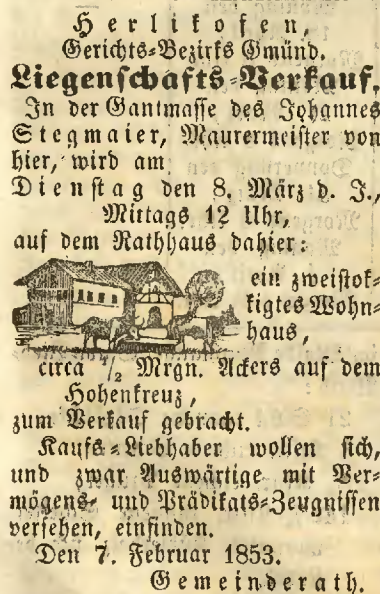 Herlikofen,
Gerichts-Bezirks Gmünd.
Liegenschafts-Verkauf.
In der Gantmasse des Johannes
Stegmaier, Maurermeister von
hier, wird am
Dienstag den 8. März d. J.,
Mittags 12 Uhr,
auf dem Rathhaus dahier:
ein zweistok-
kigtes Wohn-
haus,
circa 1/2 Mrgn. Ackers auf dem
Hohenkreuz,
zum Verkauf gebracht.
Kaufs-Liebhaber wollen sich,
und zwar Auswärtige mit Ver-
mögens- und Prädikats-Zeugnissen
versehen, einfinden.
Den 7. Februar 1853.
Gemeinderath.